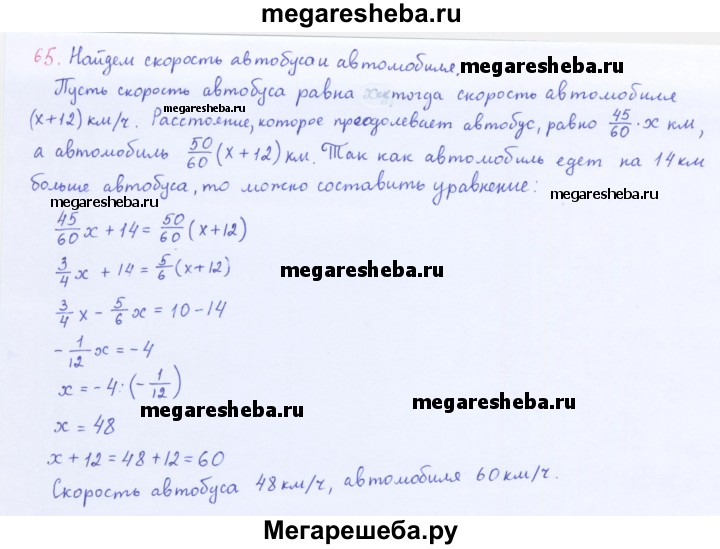 megaresheba.ru
65. Найдем скорость автобуса и автомобиля. megaresheba.ru
Пусть скорость автобуса равна x тогда скорость автомобиля
megaresheba.ru
(x+12) км/ч. Расстояние, которое преодолевает автобус, равно 45/60 · x км,
а автомобиль 50/60 (x+12) км. Так как автомобиль едет на 14 км
больше автобуса, то можно составить уравнение:
megaresheba.ru megaresheba.ru
45/60 x + 14 = 50/60 (x+12)
3/4 x + 14 = 5/6 (x+12) megaresheba.ru
3/4 x - 5/6 x = 10 - 14
- 1/12 x = -4
x = -4 : (- 1/12)
megaresheba.ru megaresheba.ru
x = 48
x + 12 = 48 + 12 = 60
Скорость автобуса 48 км/ч, автомобиля 60 км/ч.
Мегарешеба.ру